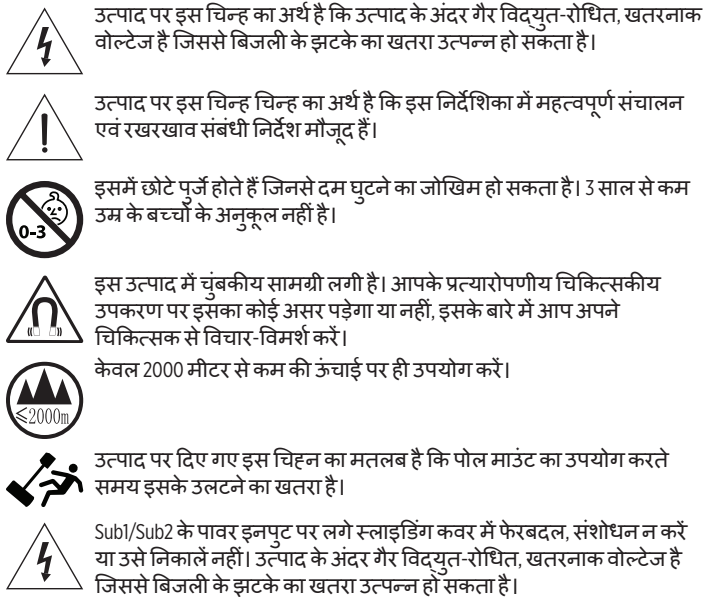 उत्पाद पर इस चिन्ह का अर्थ है कि उत्पाद के अंदर गैर विद्युत-रोधित, खतरनाक
वोल्टेज है जिससे बिजली के झटके का खतरा उत्पन्न हो सकता है।
उत्पाद पर इस चिन्ह चिन्ह का अर्थ है कि इस निर्देशिका में महत्वपूर्ण संचालन
एवं रखरखाव संबंधी निर्देश मौजूद हैं।
इसमें छोटे पुर्जे होते हैं जिनसे दम घुटने का जोखिम हो सकता है। 3 साल से कम
उम्र के बच्चों के अनुकूल नहीं है।
0-3
इस उत्पाद में चुंबकीय सामग्री लगी है। आपके प्रत्यारोपणीय चिकित्सकीय
उपकरण पर इसका कोई असर पड़ेगा या नहीं, इसके बारे में आप अपने
चिकित्सक से विचार-विमर्श करें।
केवल 2000 मीटर से कम की ऊंचाई पर ही उपयोग करें।
≤2000m
उत्पाद पर दिए गए इस चिह्न का मतलब है कि पोल माउंट का उपयोग करते
समय इसके उलटने का खतरा है।
Sub1/Sub2 के पावर इनपुट पर लगे स्लाइडिंग कवर में फेरबदल, संशोधन न करें
या उसे निकालें नहीं। उत्पाद के अंदर गैर विद्युत-रोधित, खतरनाक वोल्टेज है
जिससे बिजली के झटके का खतरा उत्पन्न हो सकता है।